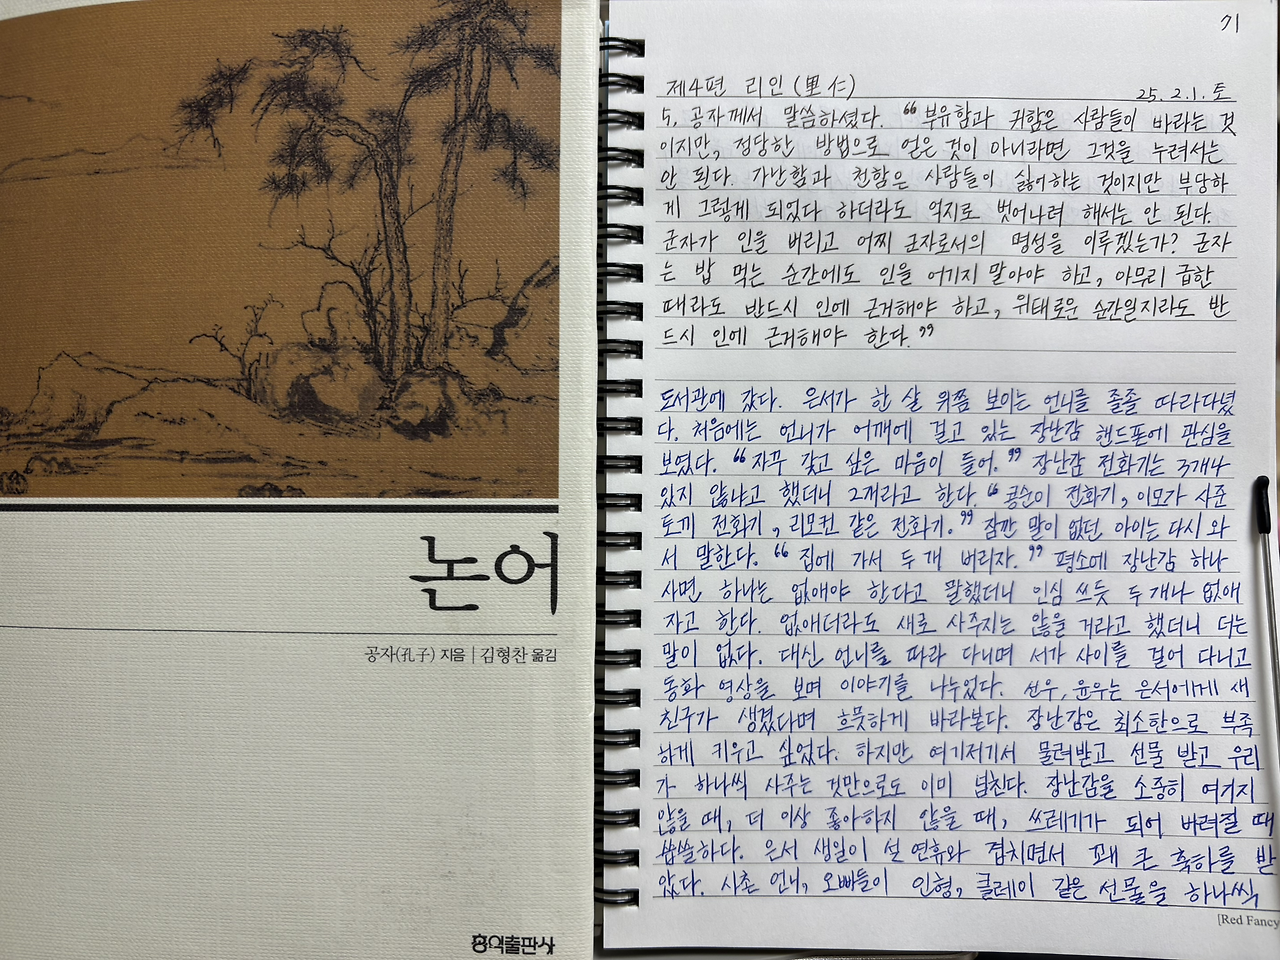 논어
공자(孔子) 지음 | 김형찬 옮김
홍익출판사
71
제4편 리인(里仁) 25. 2. 1. 토
5. 공자께서 말씀하셨다. "부유함과 귀함은 사람들이 바라는 것
이지만, 정당한 방법으로 얻은 것이 아니라면 그것을 누려서는
안 된다. 가난함과 천함은 사람들이 싫어하는 것이지만 부당하
게 그렇게 되었다 하더라도 억지로 벗어나려 해서는 안 된다.
군자가 인을 버리고 어찌 군자로서의 명성을 이루겠는가? 군자
는 밥 먹는 순간에도 인을 어기지 말아야 하고, 아무리 급한
때라도 반드시 인에 근거해야 하고, 위태로운 순간일지라도 반
드시 인에 근거해야 한다."
도서관에 갔다. 은서가 한 살 위쯤 보이는 언니를 졸졸 따라다녔
다. 처음에는 언니가 어깨에 걸고 있는 장난감 핸드폰에 관심을
보였다. "자꾸 갖고 싶은 마음이 들어." 장난감 전화기는 3개나
있지 않냐고 했더니 2개라고 한다. "공순이 전화기, 이모가 사준
토끼 전화기, 리모컨 같은 전화기." 잠깐 말이 없던 아이는 다시 와
서 말한다. "집에 가서 두 개 버리자." 평소에 장난감 하나
사면 하나는 없애야 한다고 말했더니 인심 쓰듯 두 개나 없애
자고 한다. 없애더라도 새로 사주지는 않을 거라고 했더니 더는
말이 없다. 대신 언니를 따라 다니며 서가 사이를 걸어 다니고
동화 영상을 보며 이야기를 나누었다. 선우, 윤우는 은서에게 새
친구가 생겼다며 흐뭇하게 바라본다. 장난감은 최소한으로 부족
하게 키우고 싶었다. 하지만 여기저기서 물려받고 선물 받고 우리
가 하나씩 사주는 것만으로도 이미 넘친다. 장난감을 소중히 여기지
않을 때, 더 이상 좋아하지 않을 때, 쓰레기가 되어 버려질 때
씁쓸하다. 은서 생일이 설 연휴와 겹치면서 꽤 큰 축하를 받
았다. 사촌 언니, 오빠들이 인형, 클레이 같은 선물을 하나씩
[Red Fancy